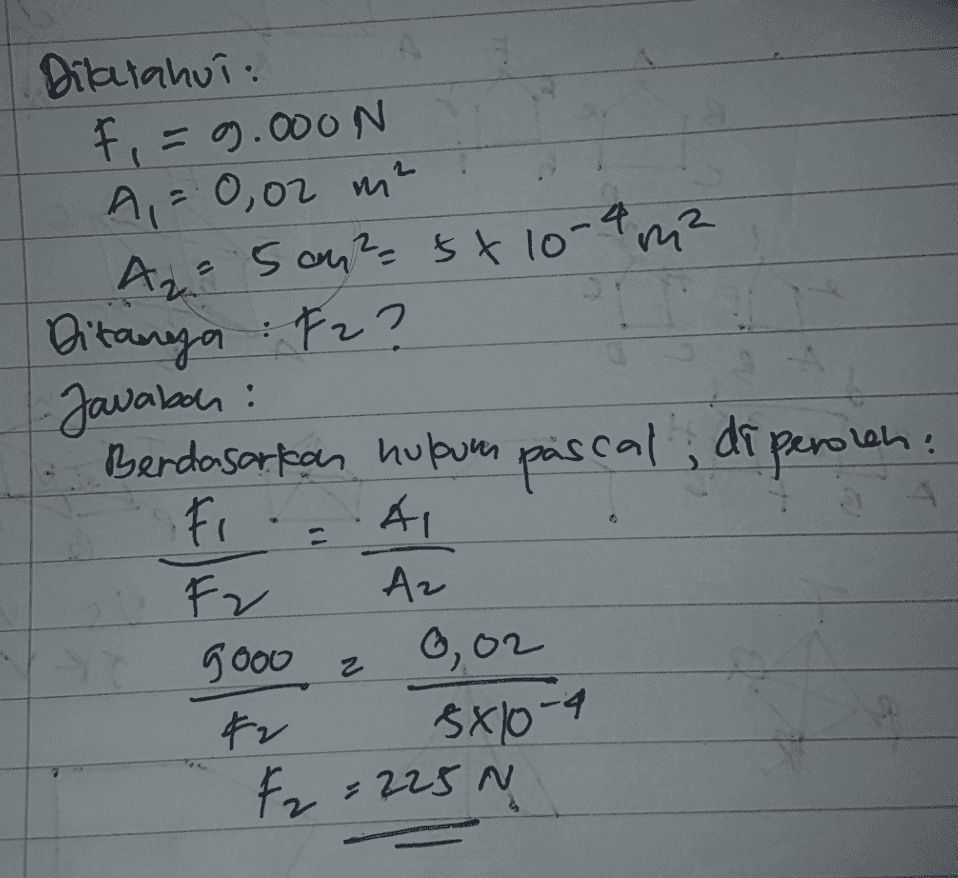 Diketahui :
F₁ = 9.000 N
A₁ = 0,02 m²
A₂ = 5 cm² = 5 x 10⁻⁴ m²
Ditanya : F₂ ?
Jawaban :
Berdasarkan hukum pascal, diperoleh :
F₁/F₂ = A₁/A₂
9000/F₂ = 0,02/5x10⁻⁴
F₂ = 225 N